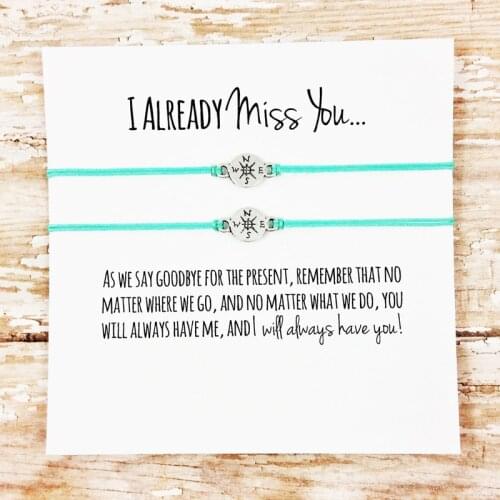 I ALREADY Miss You...
N
W E
S
N
W E
S
AS WE SAY GOODBYE FOR THE PRESENT, REMEMBER THAT NO
MATTER WHERE WE GO, AND NO MATTER WHAT WE DO, YOU
WILL ALWAYS HAVE ME, AND I will always have you!